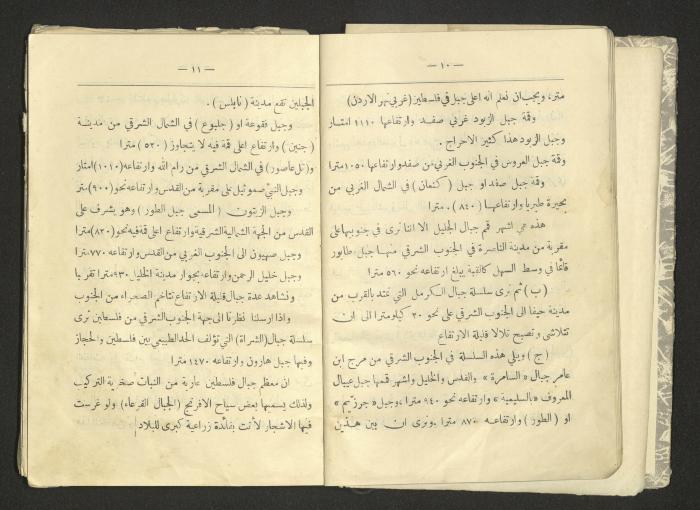 — ١٠ —
متر، ويجب ان نعلم انه اعلى جبل في فلسطين (غربي نهر الاردن)
وقمة جبل الزبود غربي صفد وارتفاعها ١١١٠ امتار
وجبل الزبود هذا كثير الاحراج .
وقمة جبل العروس في الجنوب الغربي من صفد وارتفاعها ١٠٥٠ مترا
وقمة جبل صفد او جبل ( كنعان ) في الشمال الغربي من
بحيرة طبريا وارتفاعها ( ٨٤٠ ) . مترا
هذه هي اشهر قمم جبال الجليل الا اننا نرى في جنوبيها على
مقربة من مدينة الناصرة في الجنوب الشرقي منها جبل طابور
قائما في وسط السهل كالقبة يبلغ ارتفاعه نحو ٥٦٠ مترا
( ب ) ثم نرى سلسلة جبال الكرمل التي تمتد بالقرب من
مدينة حيفا الى الجنوب الشرقي على نحو ٢٠ كيلومترا الى ان
تتلاشى وتصبح تلالا قليلة الارتفاع
( ج ) ويلي هذه السلسلة في الجنوب الشرقي من مرج ابن
عامر جبال « السامرة » والقدس والخليل واشهر قممها جبل عيبال
المعروف « بالسليمية » وارتفاعه نحو ٩٤٠ مترا ، وجبل « جرزيم »
او ( الطور ) وارتفاعه ٨٧٠ مترا ونرى ان بين هذين
— ١١ —
الجبلين تقع مدينة ( نابلس ) .
وجبل فقوعة او ( جلبوع ) في الشمال الشرقي من مدينة
( جنين ) وارتفاع اعلى قمة فيه لا يتجاوز ( ٥٢٠ ) مترا
و(تل عاصور) في الشمال الشرقي من رام الله وارتفاعه (١٠١٠) امتار
وجبل النبي صموئيل على مقربة من القدس وارتفاعه نحو (٩٠٠) متر
وجبل الزيتون ( المسمى جبل الطور ) وهو يشرف على
القدس من الجهة الشمالية الشرقية وارتفاع اعلى قمة فيه نحو (٨٢٠) مترا
وجبل صهيون الى الجنوب الغربي من القدس وارتفاعه ٧٧٠ مترا
وجبل خليل الرحمن وارتفاعه بجوار مدينة الخليل ٩٣٠ مترا تقريبا
ونشاهد عدة جبال قليلة الارتفاع تتاخم الصحراء من الجنوب
واذا ارسلنا نظرنا الى جهة الجنوب الشرقي من فلسطين نرى
سلسلة جبال (الشراة) التي تؤلف الحد الطبيعي بين فلسطين والحجاز
وفيها جبل هارون وارتفاعه ١٤٧٠ مترا
ان معظم جبال فلسطين عارية من النبات صخرية التركيب
ولذلك يسميها بعض سياح الافرنج (الجبال القرعاء) ولو غرست
فيها الاشجار لأتت بفائدة زراعية كبرى للبلاد